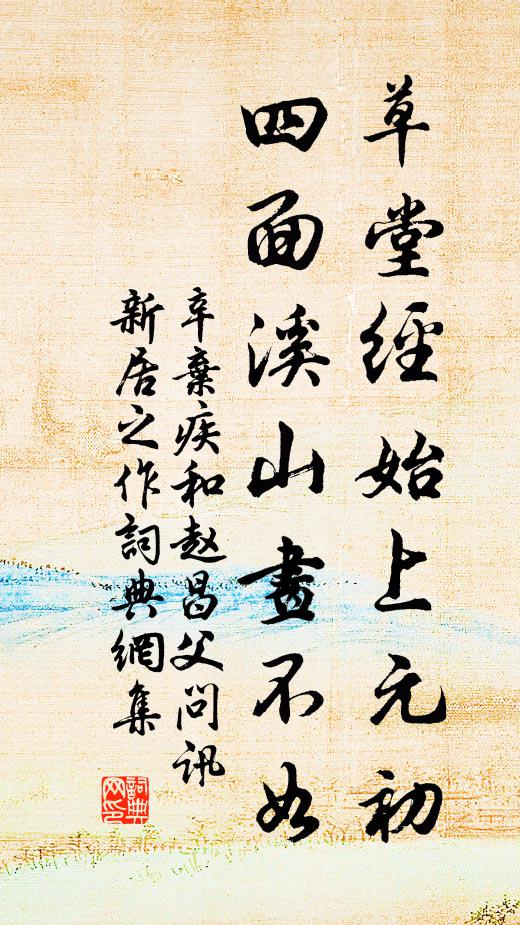 草堂經始上元初
四面溪山畫不如
辛棄疾和赵昌父問訊
新居之作詞典網集
詞典网印